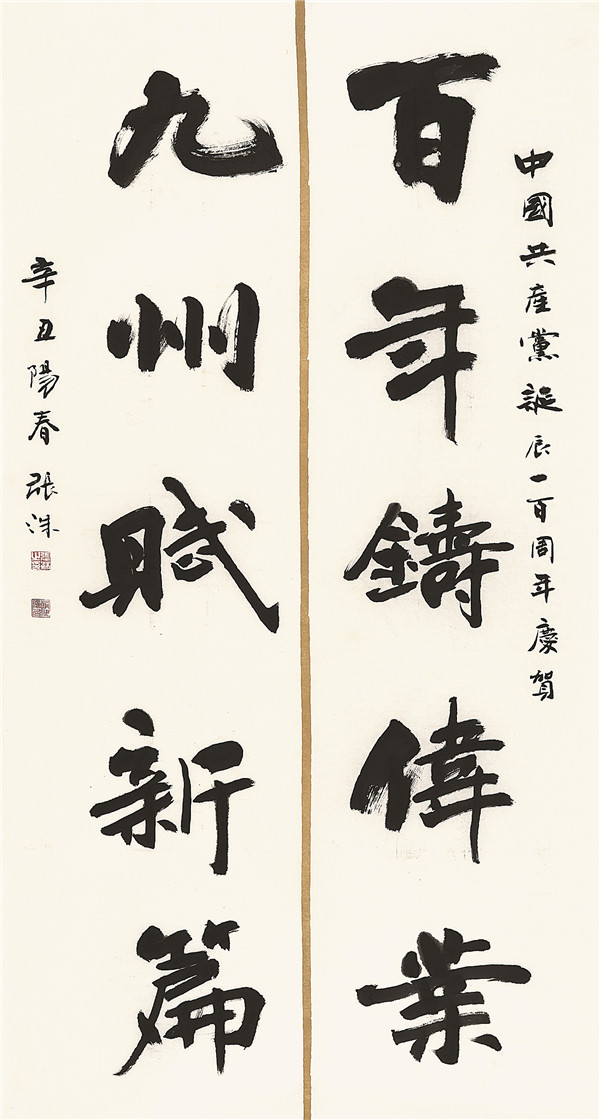 中國共産黨誕辰一百周年慶賀
百年鑄偉業
九州賦新篇
辛丑陽春 張洙